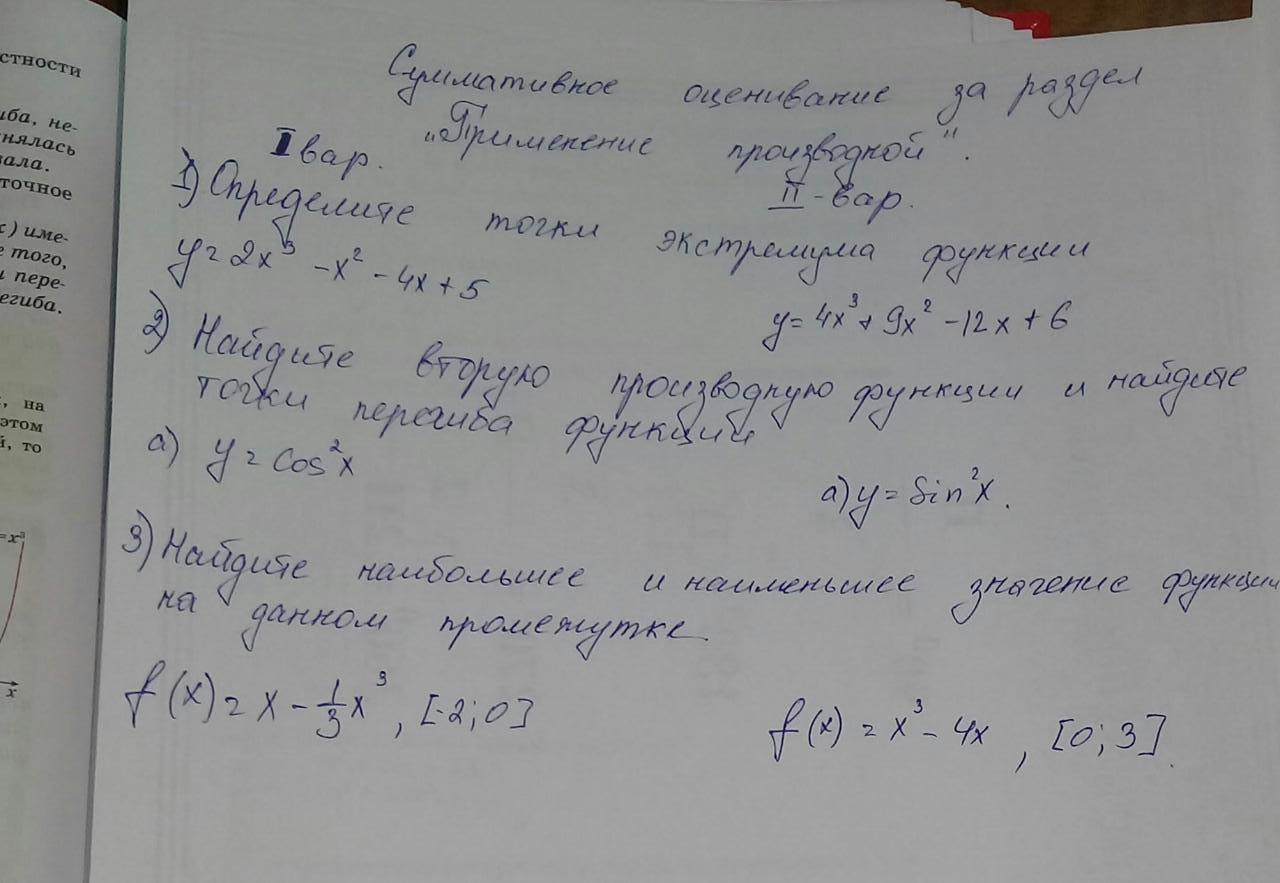 стности
иба, не-
нялась
вала.
точное
х) име-
е того,
и пере-
егиба.
, на
этом
й, то
=x³
x
Суммативное оценивание за раздел
"Применение производной".
I вар.
II-вар.
1) Определите точки экстремума функции
y=2x³-x²-4x+5
y=4x³+9x²-12x+6
2) Найдите вторую производную функции и найдите
точки перегиба функции
а) y=cos²x
а) y=sin²x.
3) Найдите наибольшее и наименьшее значение функции
на данном промежутке.
f(x)=x-1/3x³, [-2;0]
f(x)=x³-4x, [0;3].